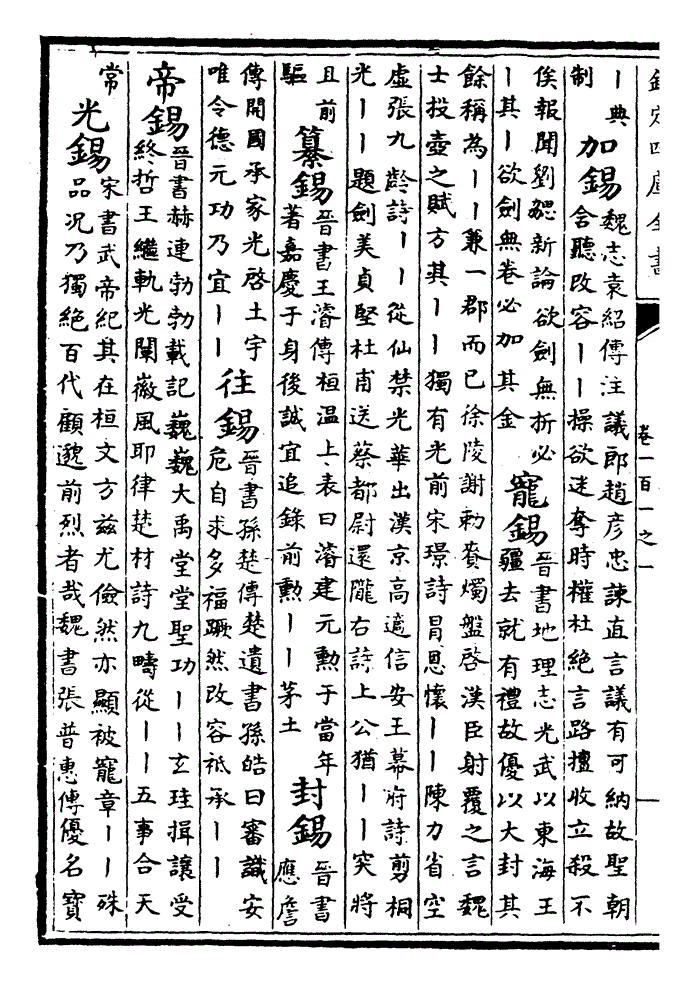 欽定四庫全書
卷一百一之一
一
｜典
制
加錫
魏志袁紹傳注議郎趙彦忠諫直言議有可納故聖朝
含聽改容｜｜操欲迷奪時權杜絶言路擅收立殺不
俟報聞劉勰新論欲劍無折必
｜其｜欲劍無卷必加其金
寵錫
晉書地理志光武以東海王
疆去就有禮故優以大封其
餘稱為｜｜兼一郡而已徐陵謝勑賚燭盤啓漢臣射覆之言魏
士投壺之賦方其｜｜獨有光前宋璟詩冒恩懷｜｜陳力省空
虛張九齡詩｜｜從仙禁光華出漢京高適信安王幕府詩剪桐
光｜｜題劍美貞堅杜甫送蔡都尉還隴右詩上公猶｜｜突將
且前
驅
纂錫
晉書王濬傳桓温上表曰濬建元勲于當年
著嘉慶于身後誠宜追錄前勲｜｜茅土
封錫
晉書
應詹
傳開國承家光啓土宇
唯令德元功乃宜｜｜
往錫
晉書孫楚傳楚遺書孫皓曰審識安
危自求多福蹶然改容祗承｜｜
帝錫
晉書赫連勃勃載記巍巍大禹堂堂聖功｜｜玄珪揖讓受
終哲王繼軌光闡徽風耶律楚材詩九疇從｜｜五事合天
常
光錫
宋書武帝紀其在桓文方兹尤儉然亦顯被寵章｜｜殊
品况乃獨絶百代顧邈前烈者哉魏書張普惠傳優名寶